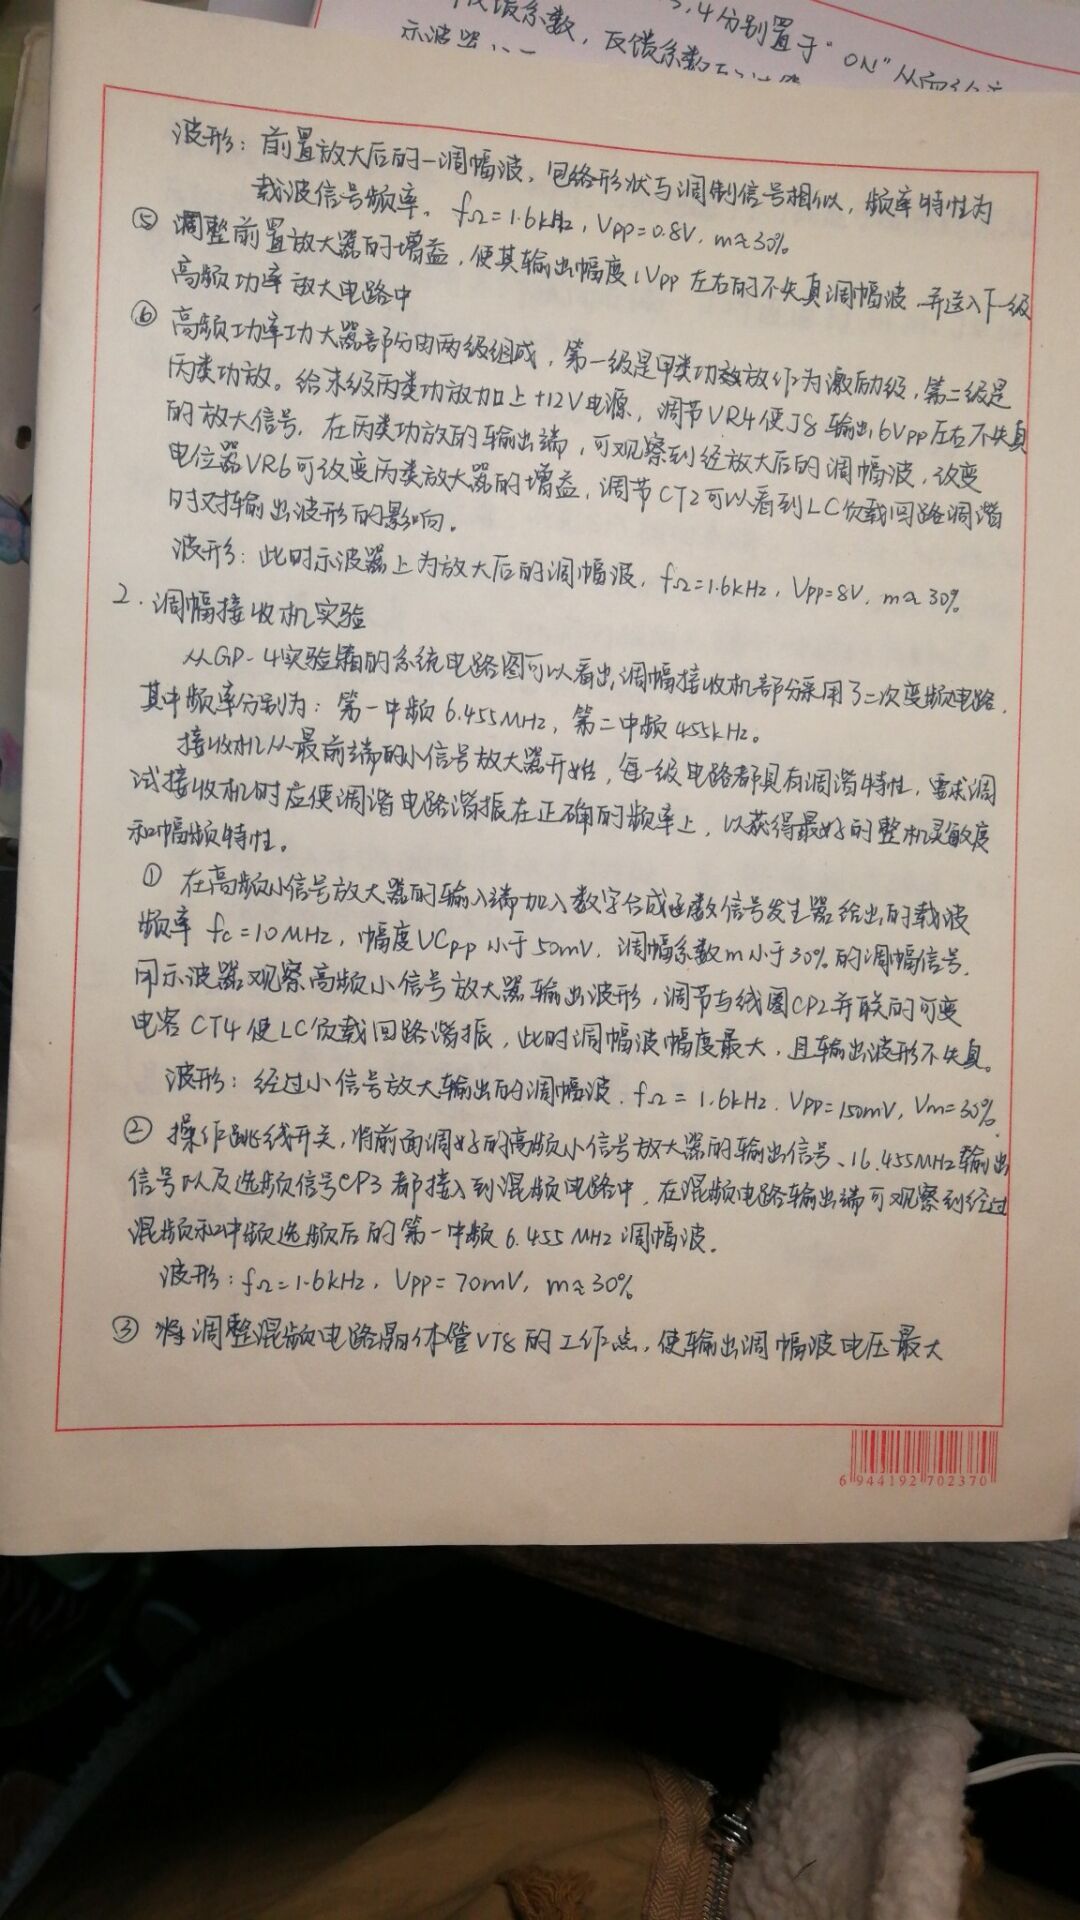 反馈系数
3.4分别置于"ON"从而
示波器
反馈系数
波形：前置放大后的一调幅波，包络形状与调制信号相似，频率特性为
载波信号频率。fΩ=1.6kHz，Vpp=0.8V，m≈30%
⑤ 调整前置放大器的增益，使其输出幅度1Vpp左右的不失真调幅波，并送入下一级
高频功率放大电路中
⑥ 高频功率功大器部分由两级组成，第一级是甲类功放作为激励级，第二级是
丙类功放。给末级丙类功放加上+12V电源，调节VR4使J8输出6Vpp左右不失真
的放大信号，在丙类功放的输出端，可观察到经放大后的调幅波，改变
电位器VR6可改变丙类放大器的增益，调节CT2可以看到LC负载回路调谐
时对输出波形的影响。
波形：此时示波器上为放大后的调幅波，fΩ=1.6kHz，Vpp=8V，m≈30%
2.调幅接收机实验
从GP-4实验箱的系统电路图可以看出，调幅接收机部分采用了二次变频电路，
其中频率分别为：第一中频6.455MHz，第二中频455kHz。
接收机从最前端的小信号放大器开始，每一级电路都具有调谐特性，需求调
试接收机时应使调谐电路谐振在正确的频率上，以获得最好的整机灵敏度
和幅频特性。
① 在高频小信号放大器的输入端加入数字合成函数信号发生器给出的载波
频率fc=10MHz，幅度VCpp小于50mV，调幅系数m小于30%的调幅信号，
用示波器观察高频小信号放大器输出波形，调节与线圈CP2并联的可变
电容CT4使LC负载回路谐振，此时调幅波幅度最大，且输出波形不失真。
波形：经过小信号放大输出的调幅波．fΩ=1.6kHz．Vpp=150mV，Vm=35%
② 操作跳线开关，将前面调好的高频小信号放大器的输出信号、16.455MHz输出
信号以及选频信号CP3都接入到混频电路中，在混频电路输出端可观察到经过
混频和中频选频后的第一中频6.455MHz调幅波。
波形：fΩ=1.6kHz，Vpp=70mV，m≈30%
③ 调整混频电路晶体管VT8的工作点，使输出调幅波电压最大
6 944192 702370